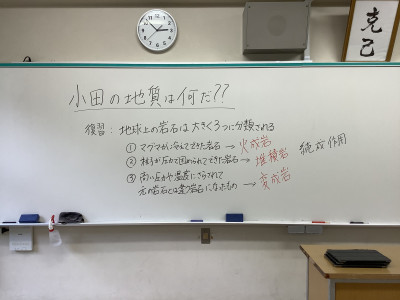 克己
小田の地質は何だ??
復習:地球上の岩石は大きく3つに分類される
① マグマが冷えてできた岩石 → 火成岩
② 粒子が圧力で固められてできた岩石 → 堆積岩
続成作用
③ 高い圧力や温度にさらされて
元の岩石とは違う岩石になったもの → 変成岩